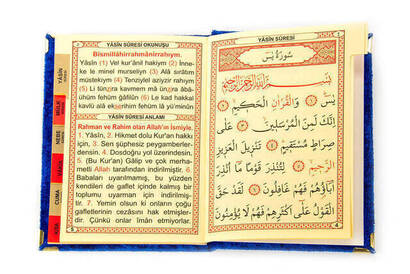 YÂSÎN SÛRESİ OKUNUŞU
Bismillâhirrahmânirrahıym.
Yâsîn (1) Vel kurânil hakiym (2) İnne-
ke le minel murseliyn (3) Alâ sırâtım
müstekıym (4) Tenziylel aziyzir rahıym
(5) Li tünzira kavmem mâ ünzira âbâ-
ühüm fehüm ğâfilûn (6) Le kad hakkal
kavlü alâ ekserihim fehüm lâ yü'minûn
YÂSÎN SÛRESİ ANLAMI
Rahman ve Rahim olan Allah'ın İsmiyle.
1. Yâsîn, 2. Hikmet dolu Kur'an hakkı
için, 3. Sen şüphesiz peygamberler-
densin. 4. Dosdoğru yol üzerindesin.
5. (Bu Kur'an) Gâlip ve çok merha-
metli Allah tarafından indirilmiştir. 6.
Babaları uyarılmamış, bu yüzden
kendileri de gaflet içinde kalmış bir
toplumu uyarman için indirilmiş-
tir. 7. Yemin olsun ki onların çoğu
gafletlerinin cezasını hak etmişler-
dir. Çünkü onlar îman etmiyorlar.
5
YÂSÎN
MÜLK
NEBE
CUMA
YÂSÎN SÛRESİ
سُورَةُ يٰسٓ
بِسْمِ اللّٰهِ الرَّحْمٰنِ الرَّحِيمِ
يٰسٓ ﴿١﴾ وَالْقُرْاٰنِ الْحَكِيمِ ﴿٢﴾
اِنَّكَ لَمِنَ الْمُرْسَلِينَ ﴿٣﴾ عَلٰى
صِرَاطٍ مُسْتَقِيمٍ ﴿٤﴾ تَنْزِيلَ الْعَزِيزِ
الرَّحِيمِ ﴿٥﴾ لِتُنْذِرَ قَوْمًا مَٓا اُنْذِرَ
اٰبَٓاؤُهُمْ فَهُمْ غَافِلُونَ ﴿٦﴾ لَقَدْ حَقَّ
الْقَوْلُ عَلٰٓى اَكْثَرِهِمْ فَهُمْ لَا يُؤْمِنُونَ
4